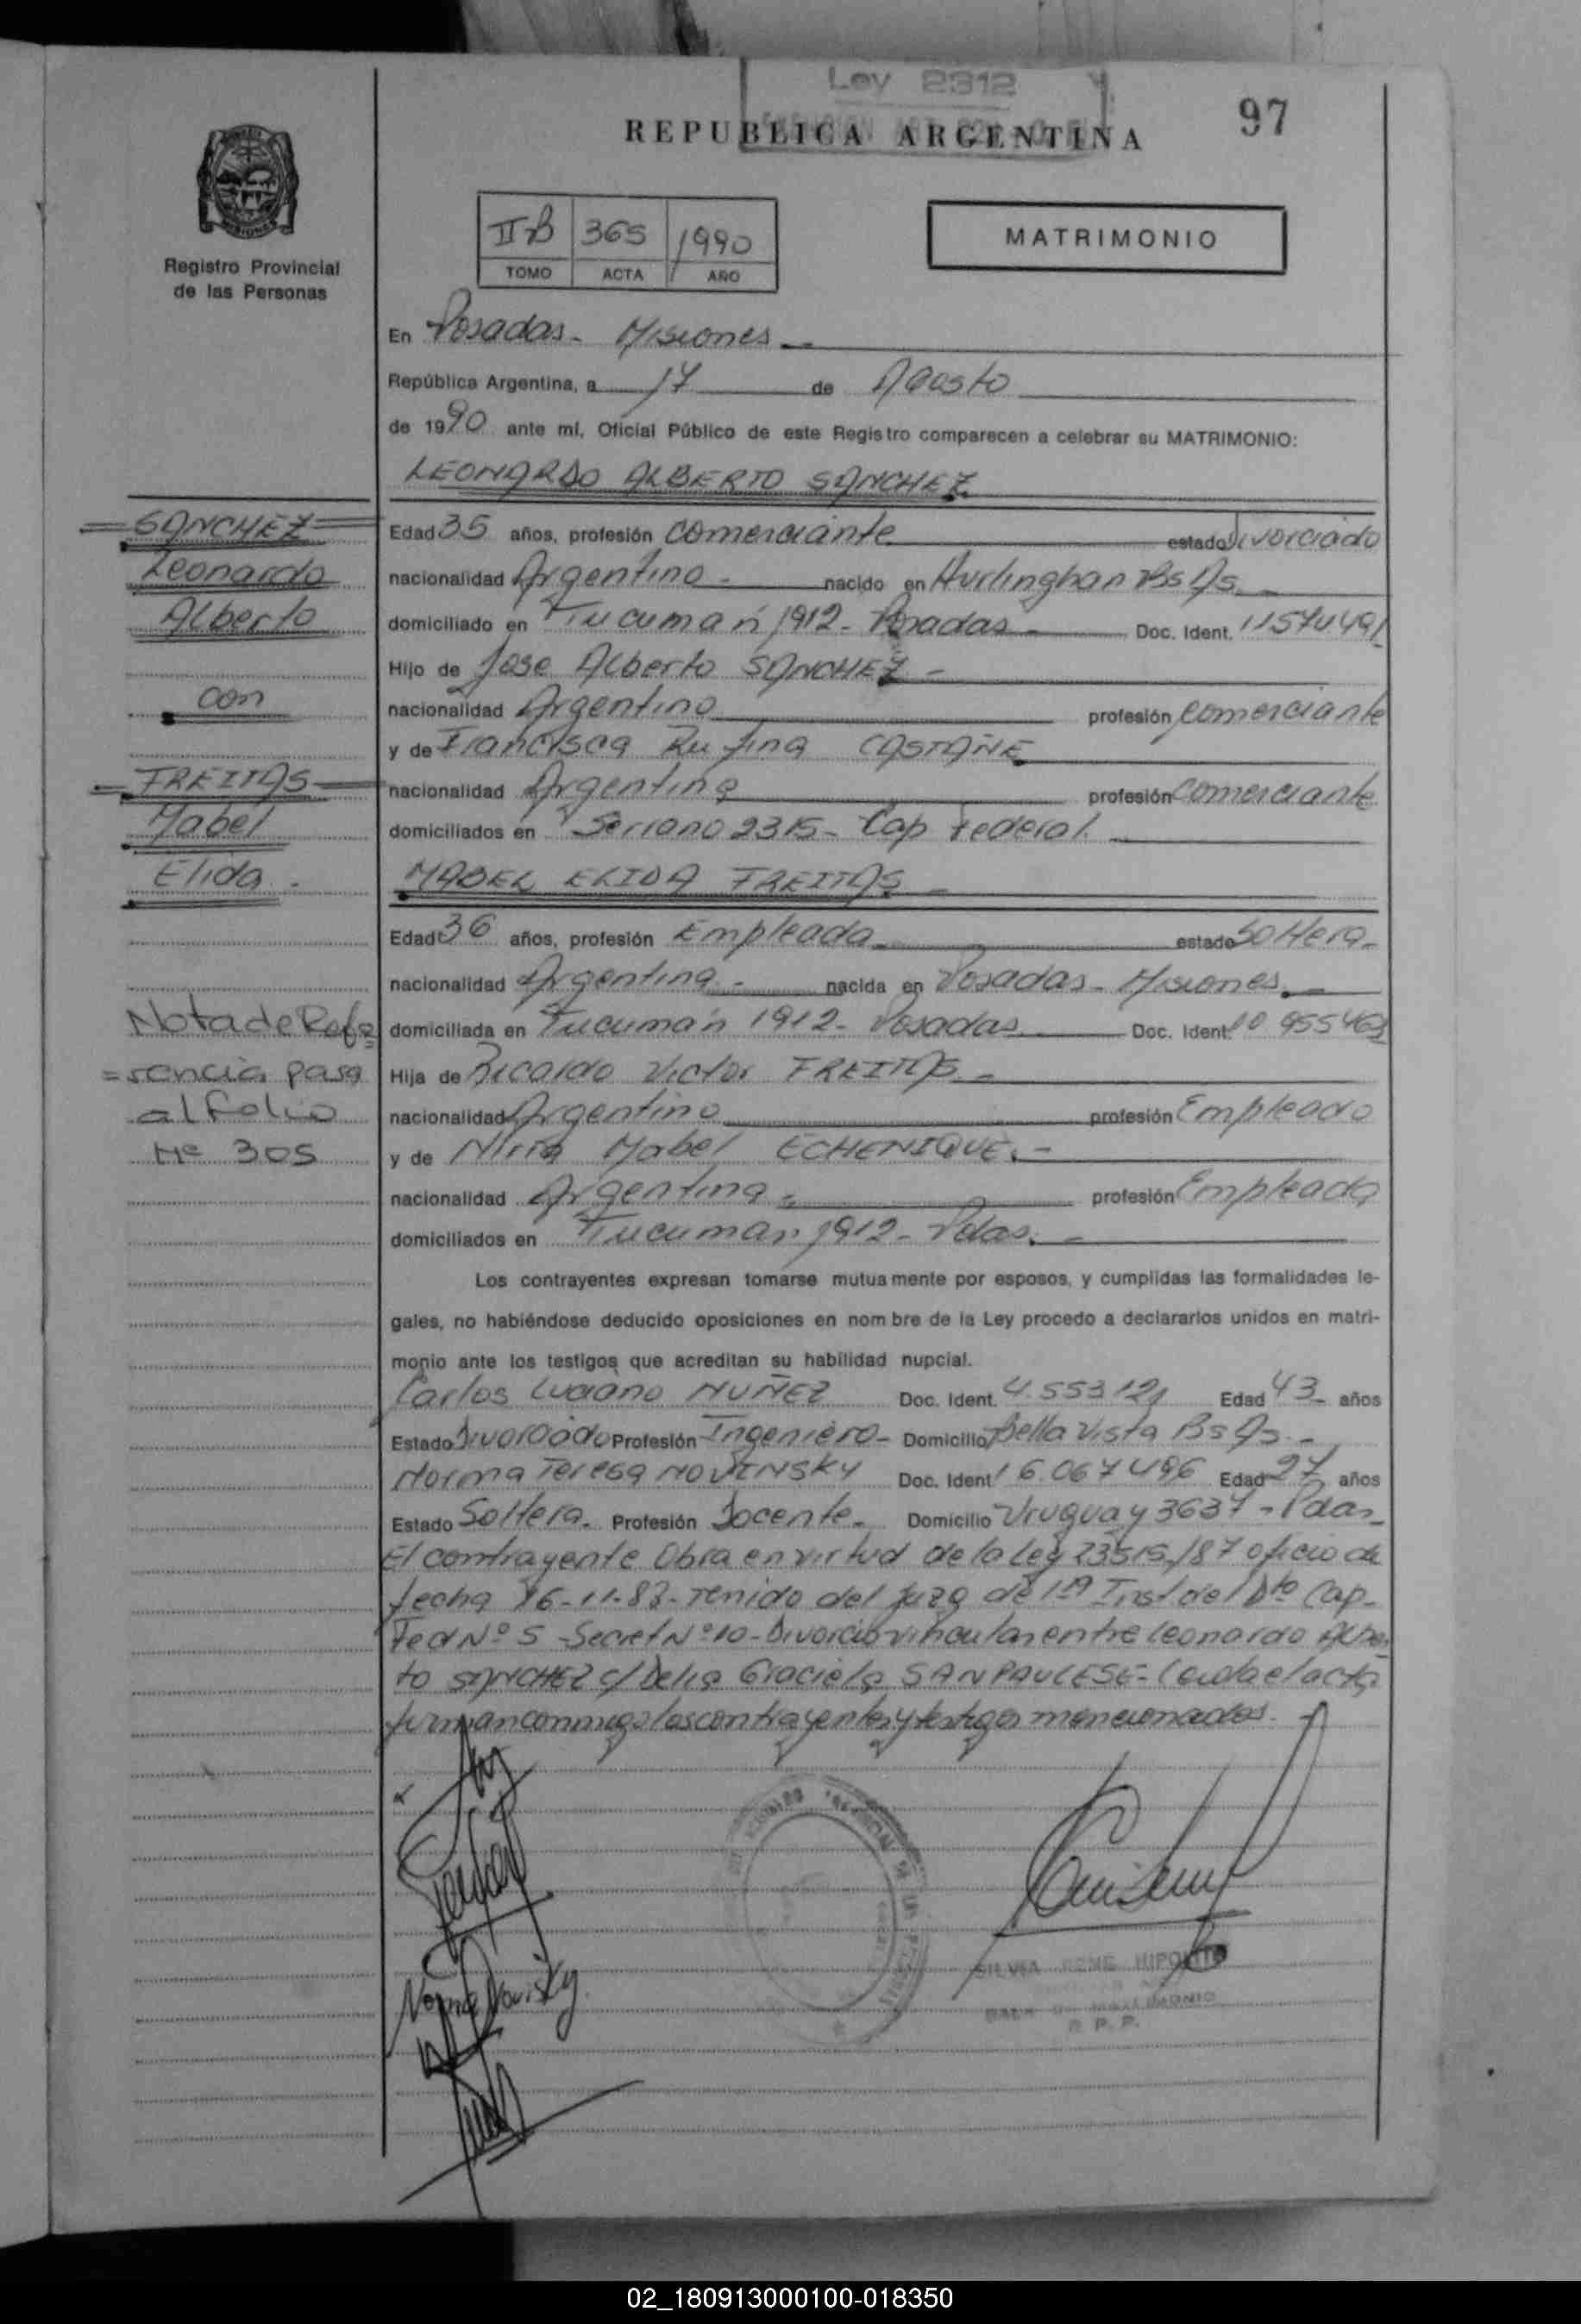 Ley 2312
REPUBLICA ARGENTINA
97
MISIONES
Registro Provincial
de las Personas
II B 365 1990
TOMO ACTA AÑO
MATRIMONIO
En Posadas - Misiones
República Argentina, a 17 de Agosto
de 1990 ante mí, Oficial Público de este Registro comparecen a celebrar su MATRIMONIO:
LEONARDO ALBERTO SANCHEZ
SANCHEZ
Leonardo
Alberto
con
FREITAS
Mabel
Elida
Nota de Refe
=rencia pasa
al folio
Nº 305
Edad 35 años, profesión comerciante estado divorciado
nacionalidad Argentino - nacido en Hurlinghan Bs As
domiciliado en Tucumán 1912 - Posadas Doc. Ident. 11570491
Hijo de Jose Alberto SANCHEZ -
nacionalidad Argentino profesión comerciante
y de Francisca Rufina CASTAÑE
nacionalidad Argentina profesión comerciante
domiciliados en Serrano 2315 - Cap Federal.
MABEL ELIDA FREITAS -
Edad 36 años, profesión Empleada estado Soltera -
nacionalidad Argentina - nacida en Posadas - Misiones. -
domiciliada en Tucumán 1912 - Posadas Doc. Ident. 10 955463
Hija de Ricardo Victor FREITAS -
nacionalidad Argentino profesión Empleado
y de Mabel ECHENIQUE. -
nacionalidad Argentina - profesión Empleada
domiciliados en Tucuman 1912 - Pdas. -
Los contrayentes expresan tomarse mutuamente por esposos, y cumplidas las formalidades le-
gales, no habiéndose deducido oposiciones en nombre de la Ley procedo a declararlos unidos en matri-
monio ante los testigos que acreditan su habilidad nupcial.
Carlos Luciano NUÑEZ Doc. Ident. 4.553.121 Edad 43 - años
Estado Divorciado Profesión Ingeniero - Domicilio Bella Vista Bs As -
Norma Teresa NOVINSKY Doc. Ident. 16.067496 Edad 27 años
Estado Soltera - Profesión Docente - Domicilio Uruguay 3637 - Pdas -
El contrayente Obra en virtud de la Ley 23515/87 oficio de
fecha 16-11-83 - del Juzg de 1ra Inst del Dto Cap-
Fed Nº 5 - Secret Nº 10 - Divorcio vincular entre Leonardo Alber
to SANCHEZ c/ Delia Graciela SANPAULESE - Leida el acta
firman conmigo los contrayentes y testigos mencionados. -
Norma Novinsky
SILVIA HIPOLITO
R. P. P.
02_180913000100-018350